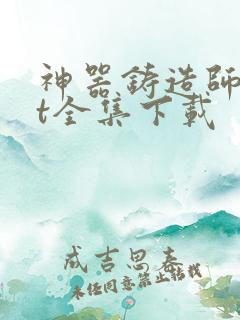 神器铸造師
t全集下載
成吉思春
未经同意禁止转载